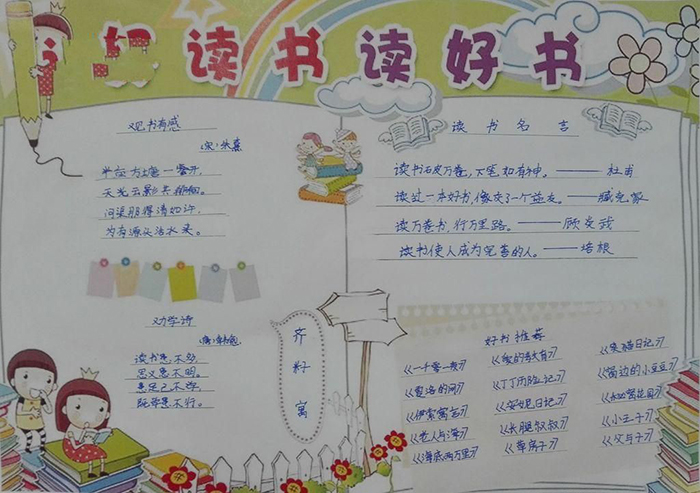 好读书读好书
观书有感
(宋)朱熹
半亩方塘一鉴开,
天光云影共徘徊。
问渠那得清如许,
为有源头活水来。
劝学诗
(唐)韩愈
读书患不多,
思义患不明。
患足己不学,
既学患不行。
读书名言
读书破万卷,下笔如有神。——杜甫
读过一本好书,像交了一个益友。——臧克家
读万卷书,行万里路。——顾炎武
读书使人成为完善的人。——培根
好书推荐
《一千零一夜》
《夏洛的网》
《伊索寓言》
《老人与海》
《海底两万里》
《爱的教育》
《丁丁历险记》
《安妮日记》
《长腿叔叔》
《草房子》
《笑猫日记》
《窗边的小豆豆》
《小王子》
《父与子》